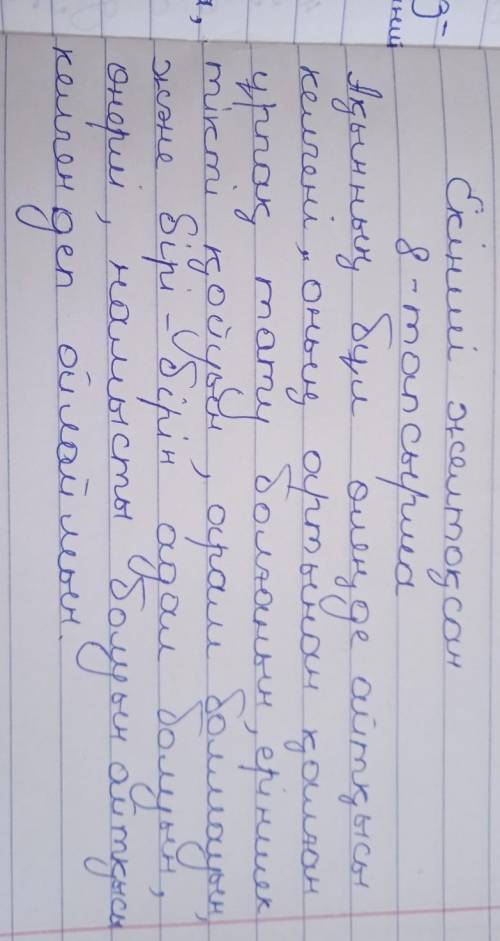 Екінші желтоқсан
8-тапсырма
Ақынның бұл өлеңде айтқысы
келгені, оның артынан қалған
ұрпақ тату болғанын, еріншек
тікті қойуын, арам болмауын,
және бірі-бірін адал болуын,
өнерлі, намысты болуын айтқысы
келген деп ойлаймын.